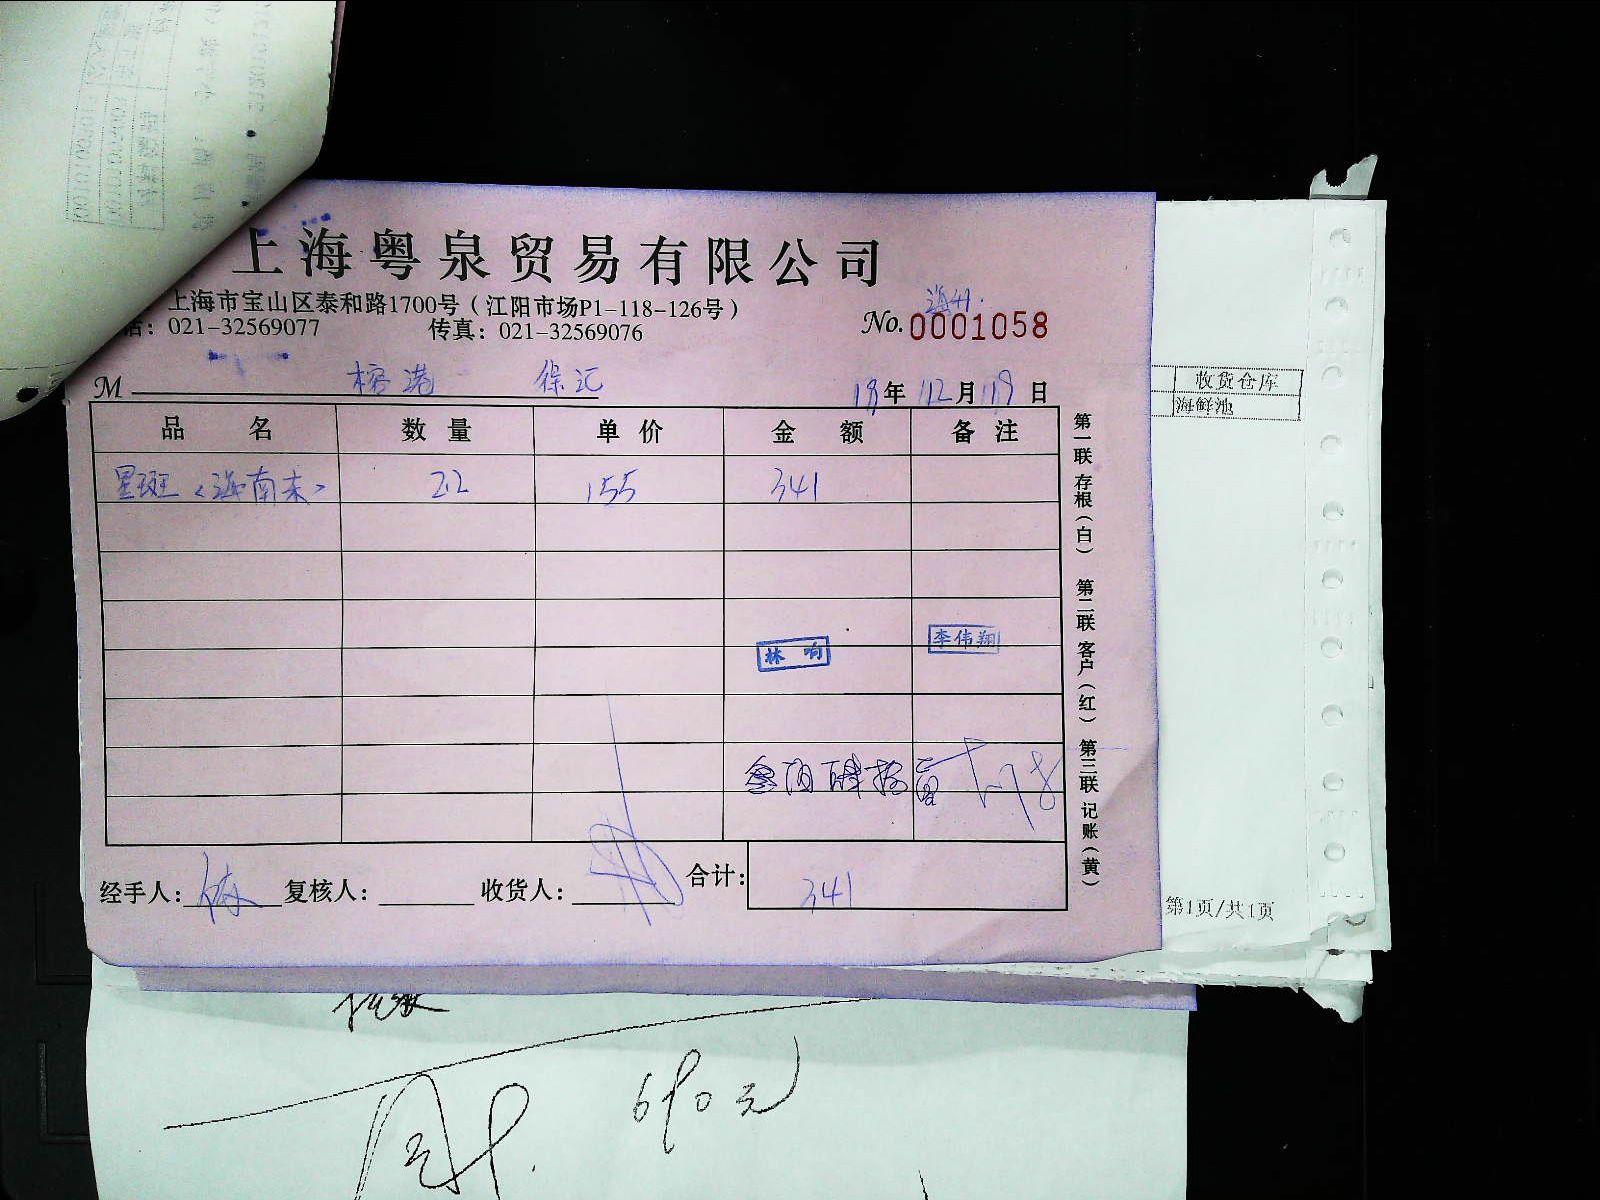 上海粤泉贸易有限公司
上海市宝山区泰和路1700号（江阳市场P1-118-126号）
话：021-32569077 传真：021-32569076
No.0001058
M 榕港 徐汇
18年12月19日
品 名 数 量 单 价 金 额 备 注
星斑 2.2 155 341
林 响
李伟翔
经手人： 复核人： 收货人： 合计： 341
第一联 存根（白） 第二联 客户（红） 第三联 记账（黄）
收货仓库
海鲜池
第1页/共1页
690元